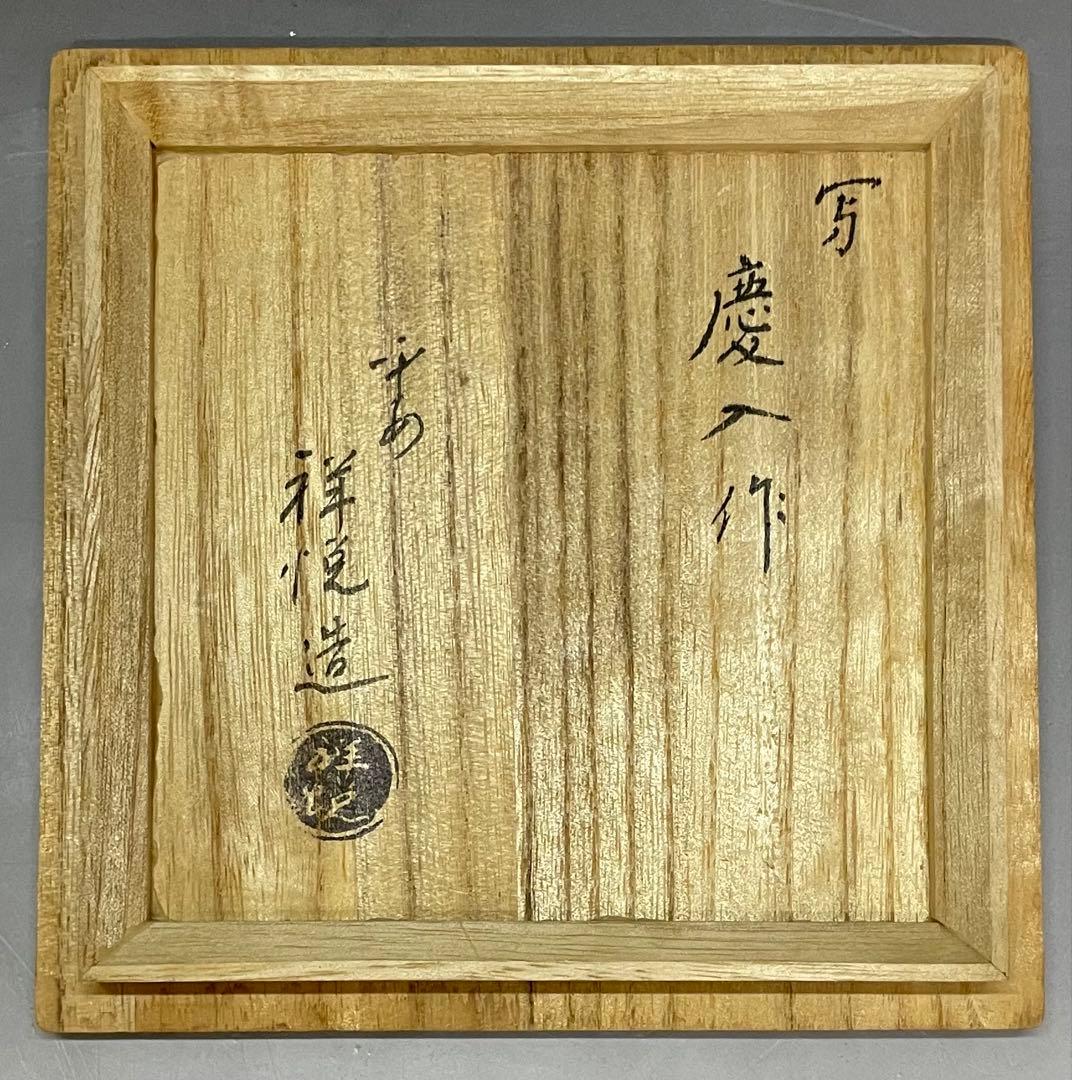 写
慶入作
平安
祥悦造
祥悦